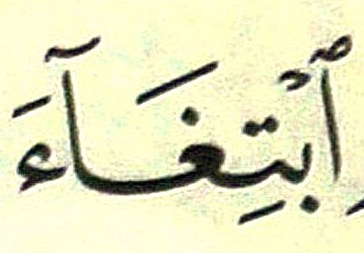 ٱبْتِغَآءَ